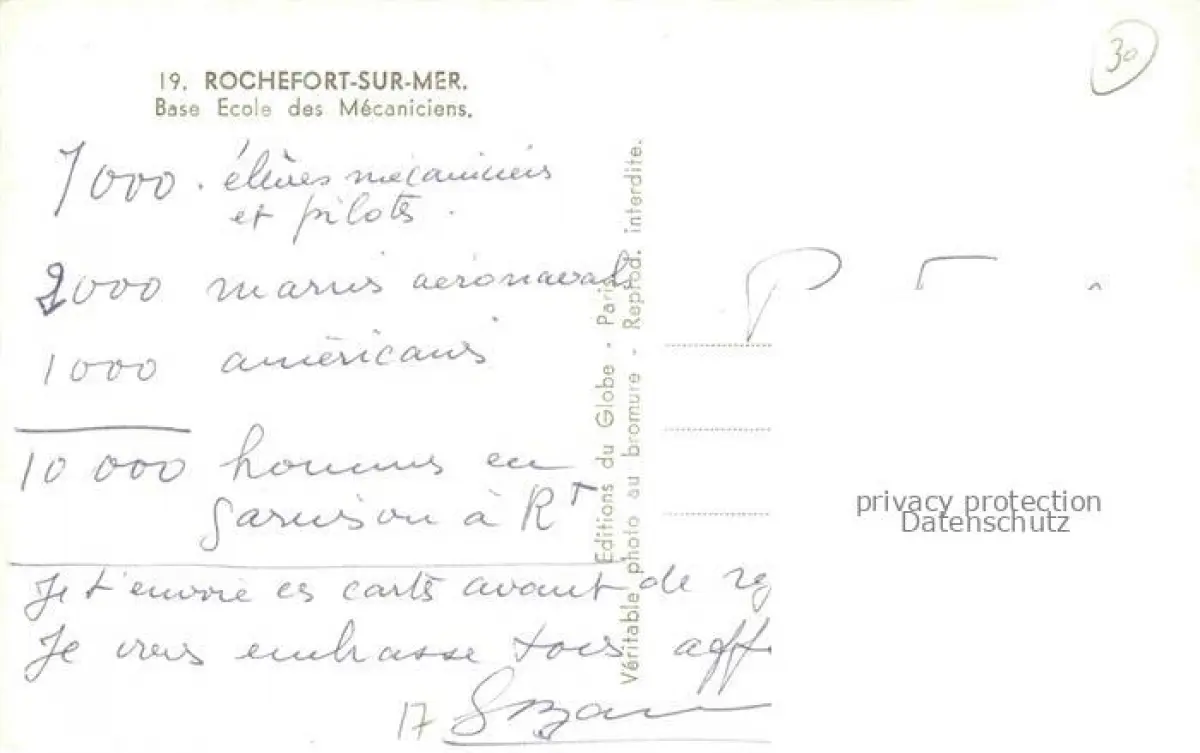 30
19. ROCHEFORT-SUR-MER.
Base Ecole des Mécaniciens.
7000. élèves mécaniciens
et pilotes.
2000 marins aéronavals
1000 américains
10 000 hommes en
garnison à RT
Je t'envoie ces cartes avant de
Je vous embrasse tous aff
17
Editions du Globe - Paris
Véritable photo au bromure - Reprod. interdite.
privacy protection
Datenschutz